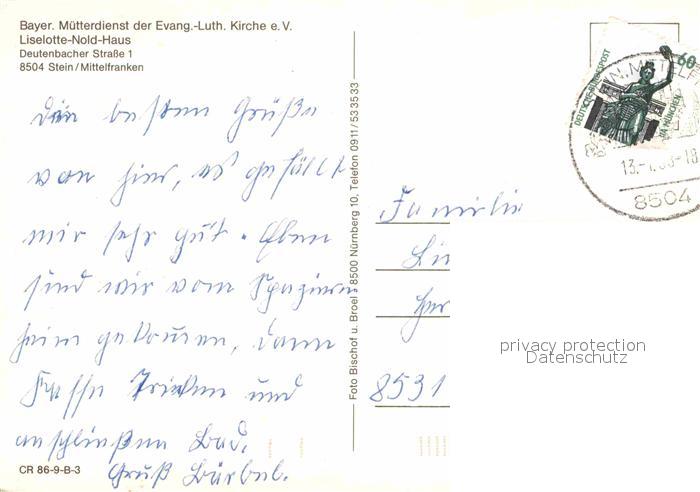 Bayer. Mütterdienst der Evang.-Luth. Kirche e. V.
Liselotte-Nold-Haus
Deutenbacher Straße 1
8504 Stein/Mittelfranken
besten Grüße
von hier, es gefällt
mir sehr gut. Eben
sind wir vom Spazieren
heim gekommen, dann
Kaffee Trinken und
anschließen Bad.
Gruß Bärbel.
CR 86-9-B-3
Foto Bischof u. Broel 8500 Nürnberg 10, Telefon 0911/533533
60
DEUTSCHE BUNDESPOST
BAVARIA MÜNCHEN
8504
Familie
Her
8531
privacy protection
Datenschutz